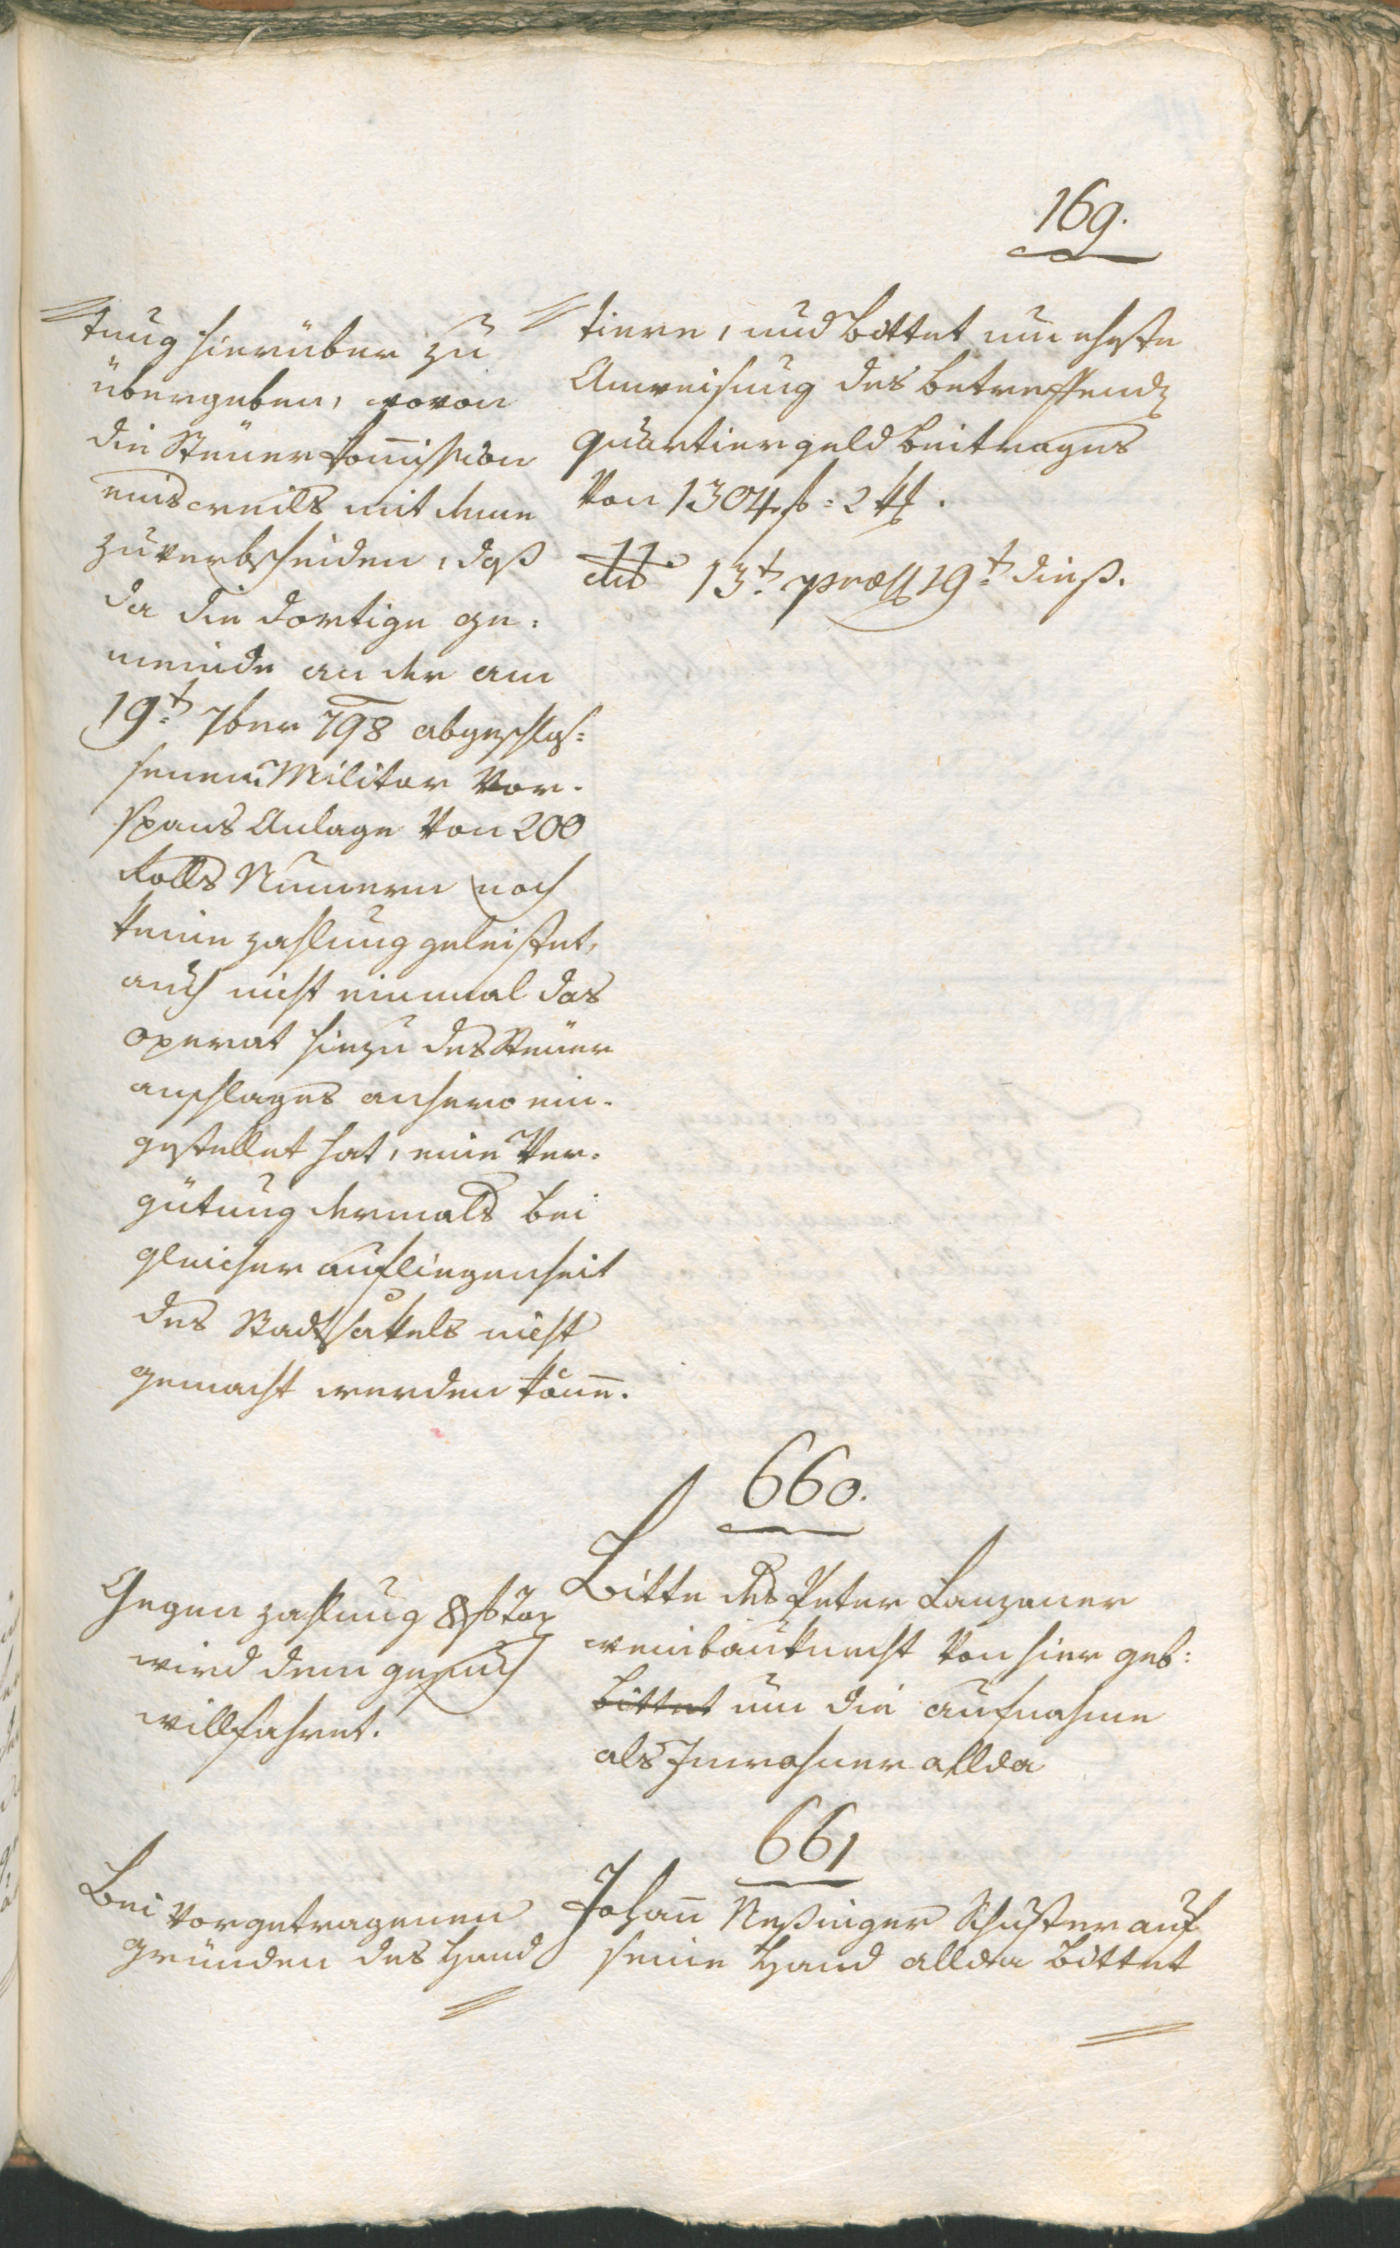 169.
tung hierüber zu
übergeben, wovon
die Steuer Kommission
einsweils mit deme
zuverbscheiden, daß
da die dortige ge:
meinde an der am
19t. 7ber 798 abgeschlos:
senen Militar Vor-
spans Anlage von 200
Rolls Numern noch
keine zahlung geleistet,
auch nicht einmal das
operat hiezu des Steuer
anschlages anhero ein-
gestellet hat, eine Ver-
gütung dermals bei
gleicher aufliegenheit
des Stadtsäkels nicht
gemacht werden könne.
tiere, und bittet um ehste
Anweisung des betreffend
quartiergeld beitrages
von 1304 f: 2 x.
dto 13t. præs 19t. dieß.
660.
Gegen zahlung 8 f Tax
wird dem gesuch
willfahret.
Bitte des Peter Lanzaner
weinbauknecht von hier geb:
bittet um die aufnahme
als Inwohner allda
661
Bei vorgetragenen
gründen des Hand
Johann Neßinger Schuster auf
seine Hand allda bittet